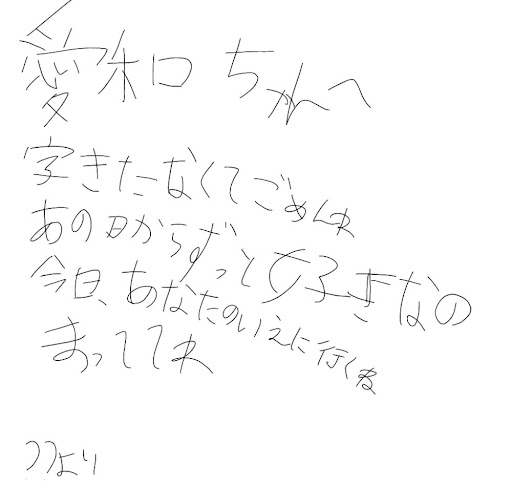 愛和ちゃんへ
字きたなくてごめんね
あの日からずっと好きなの
今日、あなたのいえに行くね
まっててね
??より